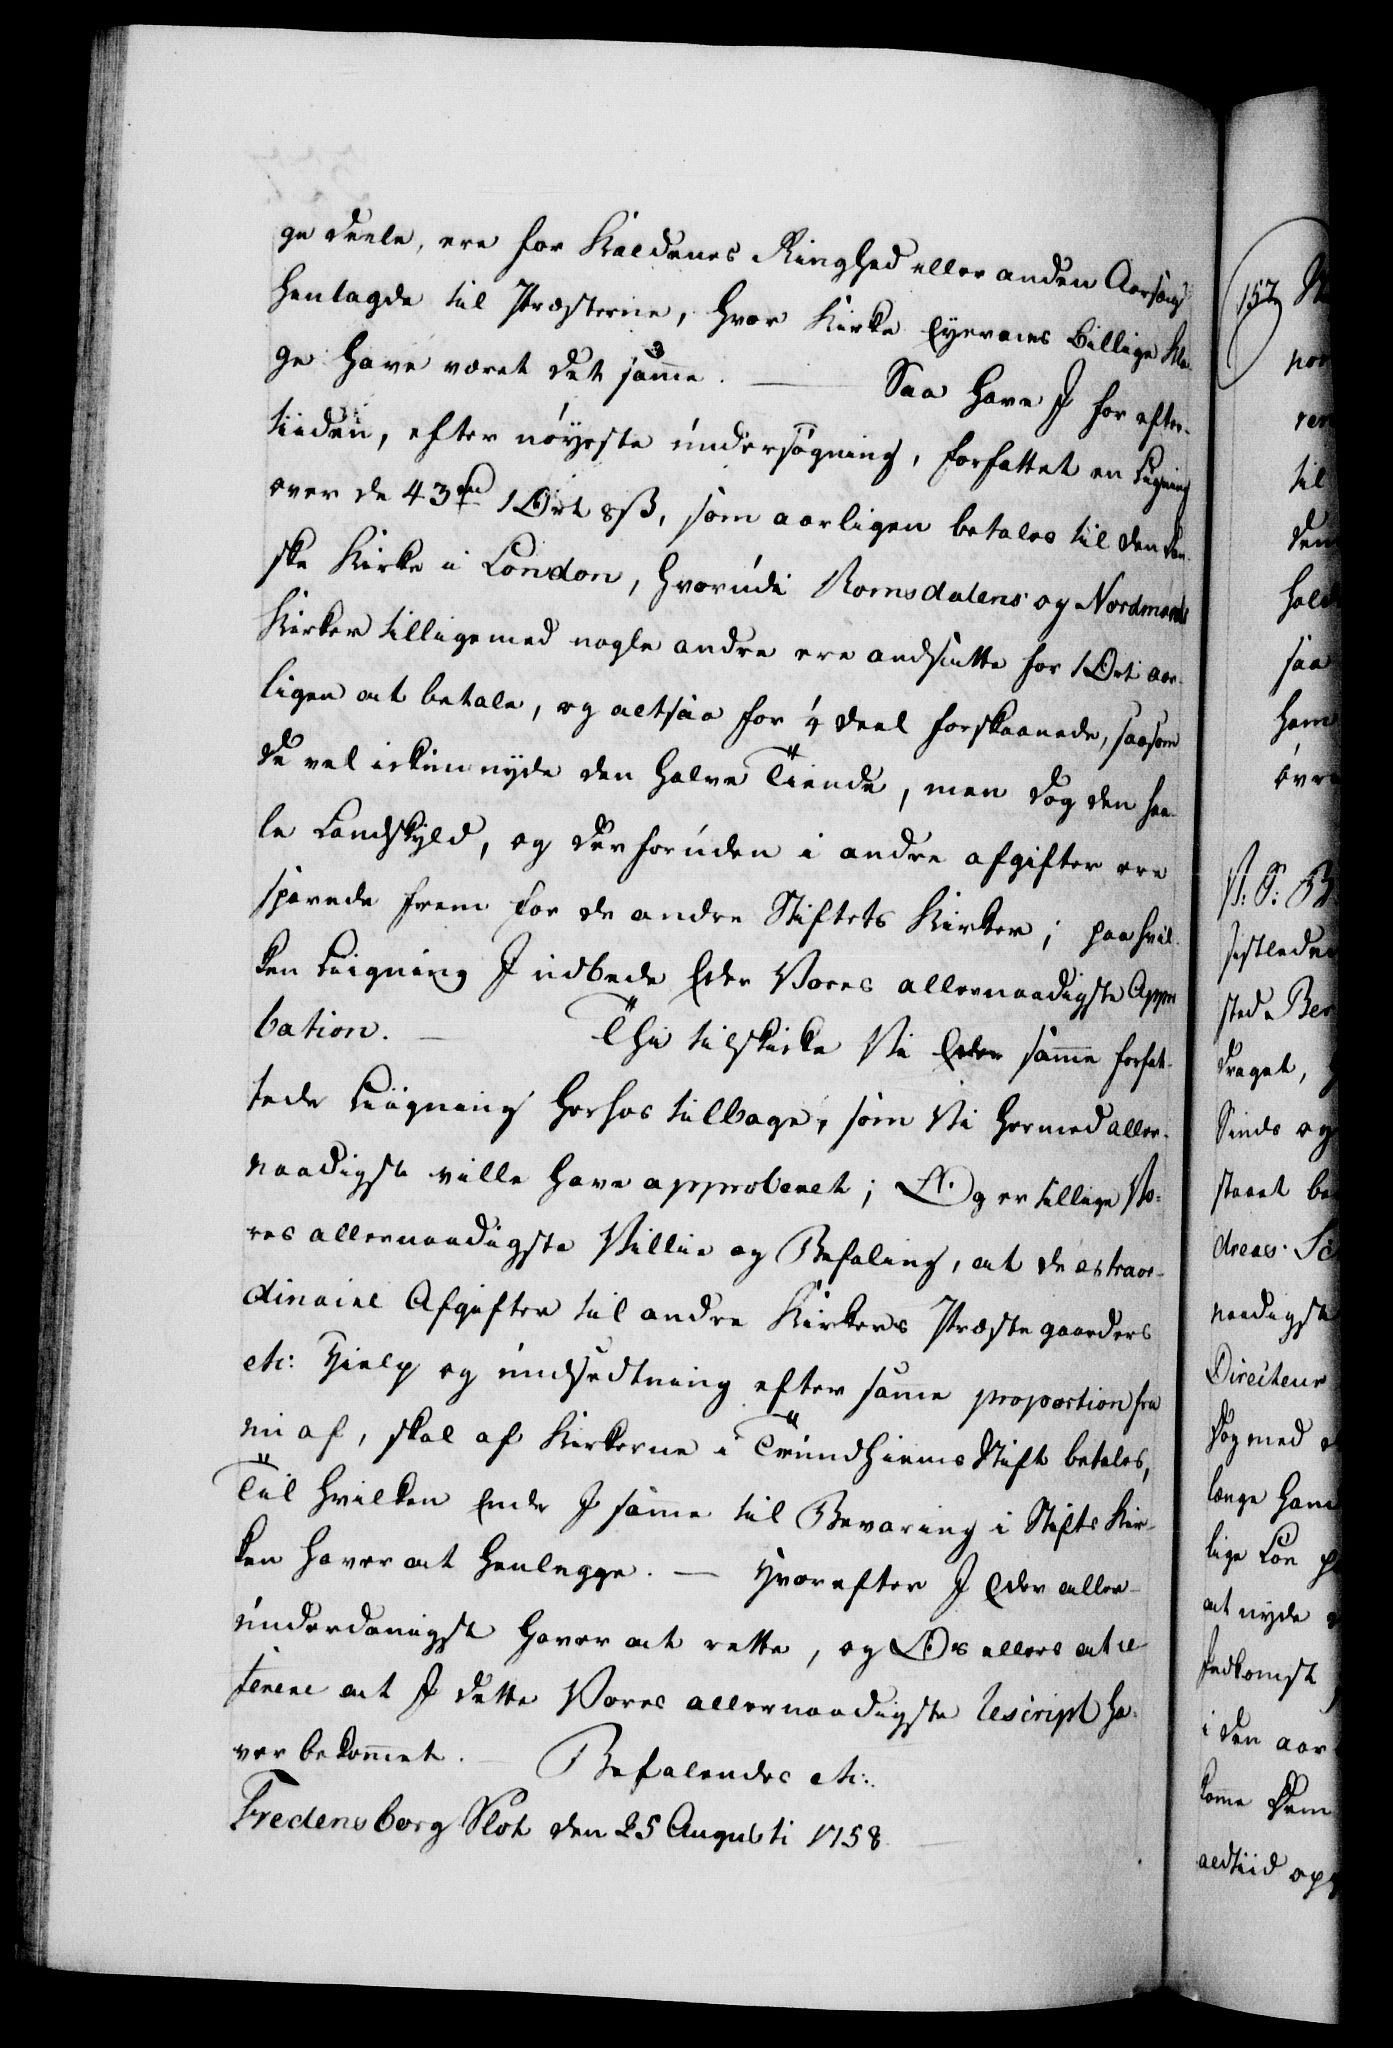 ge deele, ere for Kaldenes Ringhed eller anden Aarsags
henlagde til Præsterne, hvor Kirke Eyernes billige Kla-
ge have været det samme. — Saa have I for efter-
tiiden, efter nøyeste undersøgning, forfattet en Ligning
over de 43 rd 1 Ort 8 ß, som aarligen betales til den dan-
ske Kirke i London, hvorudi Romsdalens og Nordmørs
Kirker tilligemed nogle andre ere andsatte for 1 Ort aar-
ligen at betale, og altsaa for 1/4 deel forskaanede, saasom
de vel ickun nyde den halve Tiende, men dog den hee-
le Landskyld, og derforuden i andre afgifter ere
sparede frem for de andre Stiftets Kirker; paa hvil-
ken Liigning I udbede Eder Vores allernaadigste Appro
bation. — Thi tilskicke Vi Eder samme forfat-
tede Liigning herhos tilbage, som Vi hermed aller-
naadigst ville have approberet; Og er tillige Vo-
res allernaadigste Villie og Befaling, at de extraor-
dinaire Afgifter til andre Kirkers Præstegaarders
etc: Hielp og undsedtning efter samme proportion her
ni af, skal af Kirkerne i Trundhiems Stift betales,
Til hvilken Ende I samme til Bevaring i Stifts Kir-
ken haver at henlegge. — Hvorefter I Eder aller-
underdanigst haver at rette, og Os ellers at re
ferere at I dette Vores allernaadigste Rescript ha-
ver bekommet. — Befalendes etc:.
Fredensborg Slot den 25 Augusti 1758
157
til
saa
V: S: B
sted. Ber
draget,
Sinds og
dreas Sc
naadigste
Directeur
Dog med
længe ham
lige Løn
at nyde
Indkomst
i den aar
komme Dem
altiid op